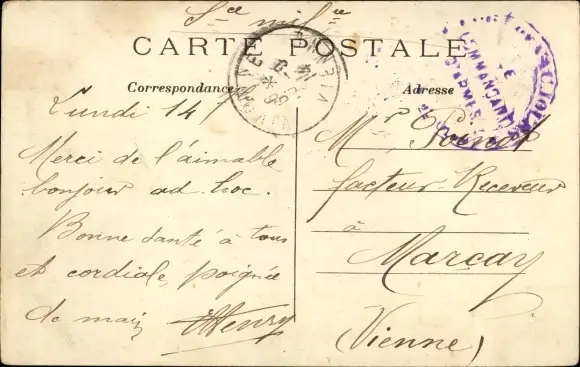 Sce mil re
CARTE POSTALE
Correspondance
Adresse
Lundi 14
Merci de l'aimable
bonjour ad hoc.
Bonne santé à tous
et cordiale poignée
de main Henry
Mr
facteur-Receveur
à
Marçay
(Vienne)
VIENNE
COMMANDANT